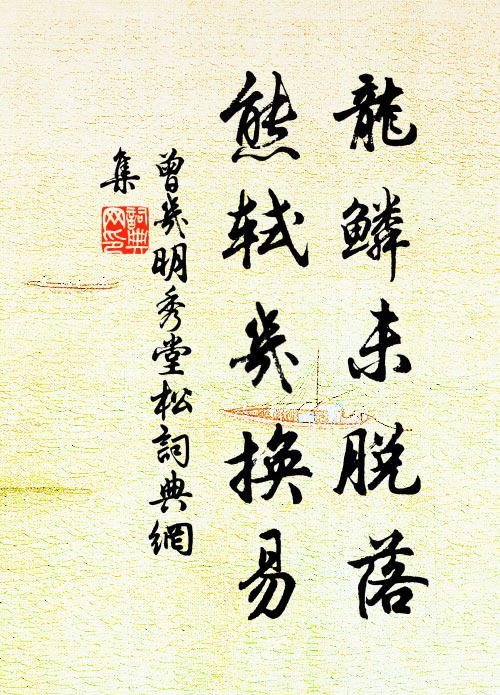 龍鱗未脫落
熊軾幾換易
曾幾明秀堂松詞典網
集
詞典
网印